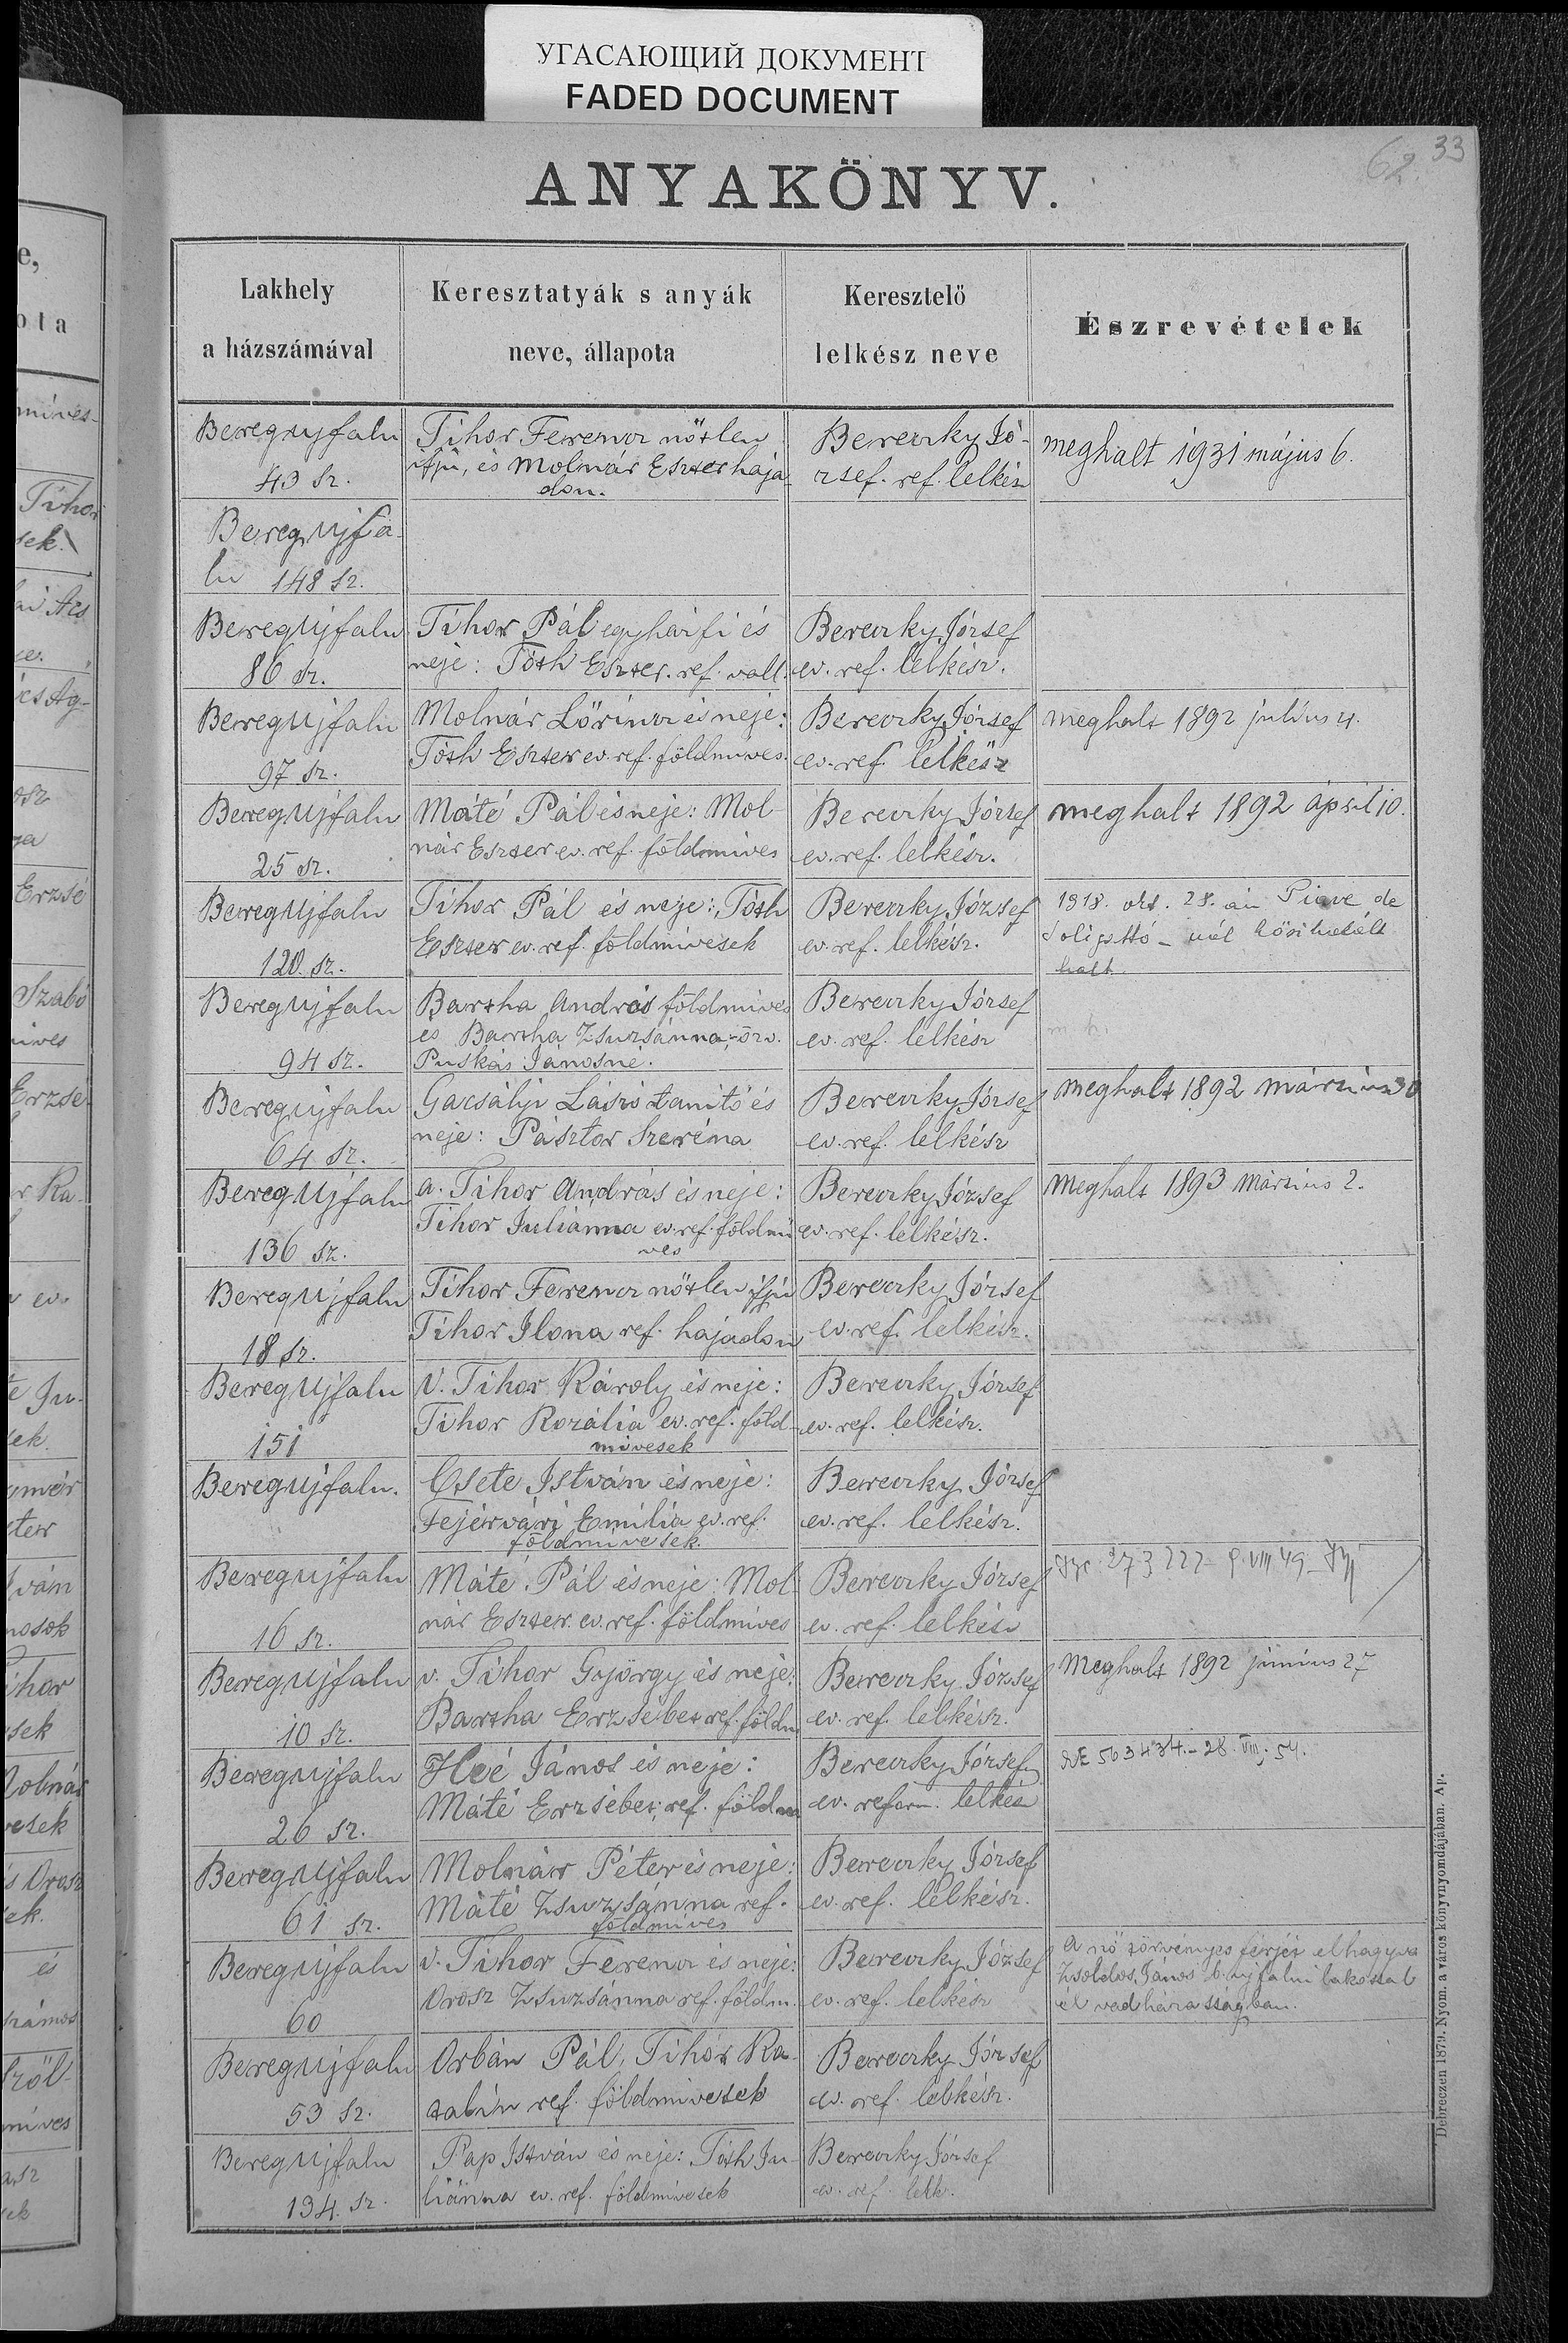 УГАСАЮЩИЙ ДОКУМЕНТ
FADED DOCUMENT
62. 33
ANYAKÖNYV.
Lakhely
a házszámával
Keresztatyák s anyák
neve, állapota
Keresztelő
lelkész neve
Észrevételek
Beregujfalu
43 sz.
Tihor Ferencz nőtlen
ifju, és Molnár Eszter haja
don.
Bereczky Jó-
zsef. ref. lelkész
meghalt 1931 május 6.
Beregujfa-
lu 148 sz.
Beregujfalu
86 sz.
Tihor Pál egyházfi és
neje: Tóth Eszter. ref. vall.
Bereczky József
ev. ref. lelkész.
Beregujfalu
97 sz.
Molnár Lőrincz és neje:
Tóth Eszter ev. ref. földmives.
Bereczky József
ev. ref. lelkész
meghalt 1892 julius 4.
Beregujfalu
25 sz.
Máté Pál és neje: Mol-
nár Eszter ev. ref. földmives
Bereczky József
ev. ref. lelkész.
meghalt 1892 április 10.
Beregujfalu
120. sz.
Tihor Pál és neje: Tóth
Eszter ev. ref. földmivesek
Bereczky József
ev. ref. lelkész.
1918. okt. 28. án Piave de
Soligottó - nál hősi halált
halt.
Beregujfalu
94 sz.
Bartha András földmives
és Bartha Zsuzsánna, özv.
Puskás Jánosné.
Bereczky József
ev. ref. lelkész
m h.
Beregujfalu
64 sz.
Gacsályi László tanitó és
neje: Pásztor Szeréna
Bereczky József
ev. ref. lelkész
Meghalt 1892 márczius 30
Beregujfalu
136 sz.
a. Tihor András és neje:
Tihor Juliánna ev. ref. földmi
ves
Bereczky József
ev. ref. lelkész.
Meghalt 1893 márczius 2.
Beregujfalu
18 sz.
Tihor Ferencz nőtlen ifju
Tihor Ilona ref. hajadon
Bereczky József
ev. ref. lelkész.
Beregujfalu
151
V. Tihor Károly és neje:
Tihor Rozália ev. ref. föld-
mivesek
Bereczky József
ev. ref. lelkész.
Beregujfalu.
Csete István és neje:
Fejérvári Emilia ev. ref.
földmivesek.
Bereczky József
ev. ref. lelkész.
Beregujfalu
16 sz.
Máté Pál és neje: Mol
nár Eszter. ev. ref. földmives
Bereczky József
ev. ref. lelkész
273222 VIII 49
Beregujfalu
10 sz.
v. Tihor György és neje:
Bartha Erzsébet ref. földm
Bereczky József
ev. ref. lelkész.
Meghalt 1892 június 27
Beregujfalu
26 sz.
Heé János és neje:
Máté Erzsébet; ref. földm
Bereczky József
ev. reform. lelkész
563434. - 28. VIII. 54.
Beregujfalu
61 sz.
Molnár Péter és neje:
Máté Zsuzsánna ref.
földmives
Bereczky József
ev. ref. lelkész.
Beregujfalu
60
v. Tihor Ferencz és neje:
Orosz Zsuzsánna ref. földm.
Bereczky József
ev. ref. lelkész
A nő törvényes férjét elhagyva
Zsoldos János b. ujfalui lakossal
él vadházasságban.
Beregujfalu
53 sz.
Orbán Pál, Tihór Ka-
talin ref. földmivesek
Bereczky József
ev. ref. lelkész.
Beregujfalu
134. sz.
Pap István és neje: Tóth Ju-
liánna ev. ref. földmivesek
Bereczky József
ev. ref. lelk.
Debreczen 1879. Nyom. a város könyvnyomdájában. Ap.